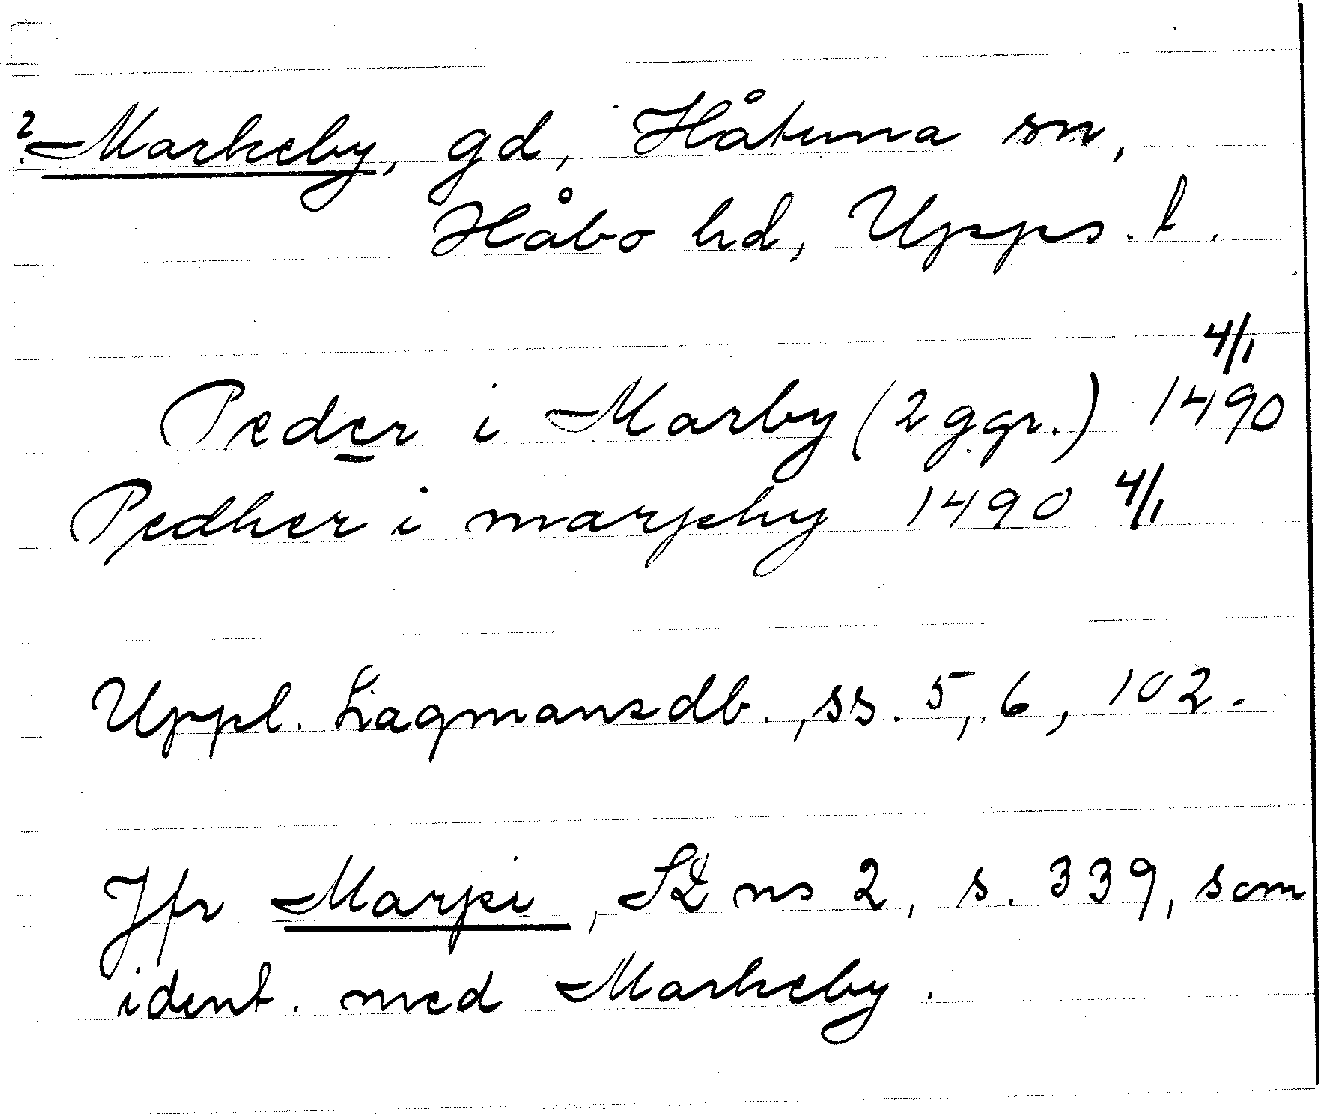 ? Markeby, gd, Håtuna sn,
Håbo hd, Upps. l.
4/1
Peder i Marby (2 ggr.) 1490
Pedher i marpeby 1490 4/1
Uppl. Lagmansdb., ss. 5, 6, 102.
Jfr Marpi, SD ns 2, s. 339, som
ident. med Markeby.